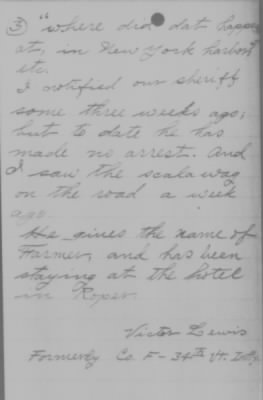 ③ "where did dat happen
at, in New York harbor"
etc.
I notified our sheriff
some three weeks ago;
but to date he has
made no arrest. And
I saw the scalawag
on the road a week
ago.
He gives the name of
Farmer, and has been
staying at the hotel
in Roper.
Victor Lewis
Formerly Co. F - 34th